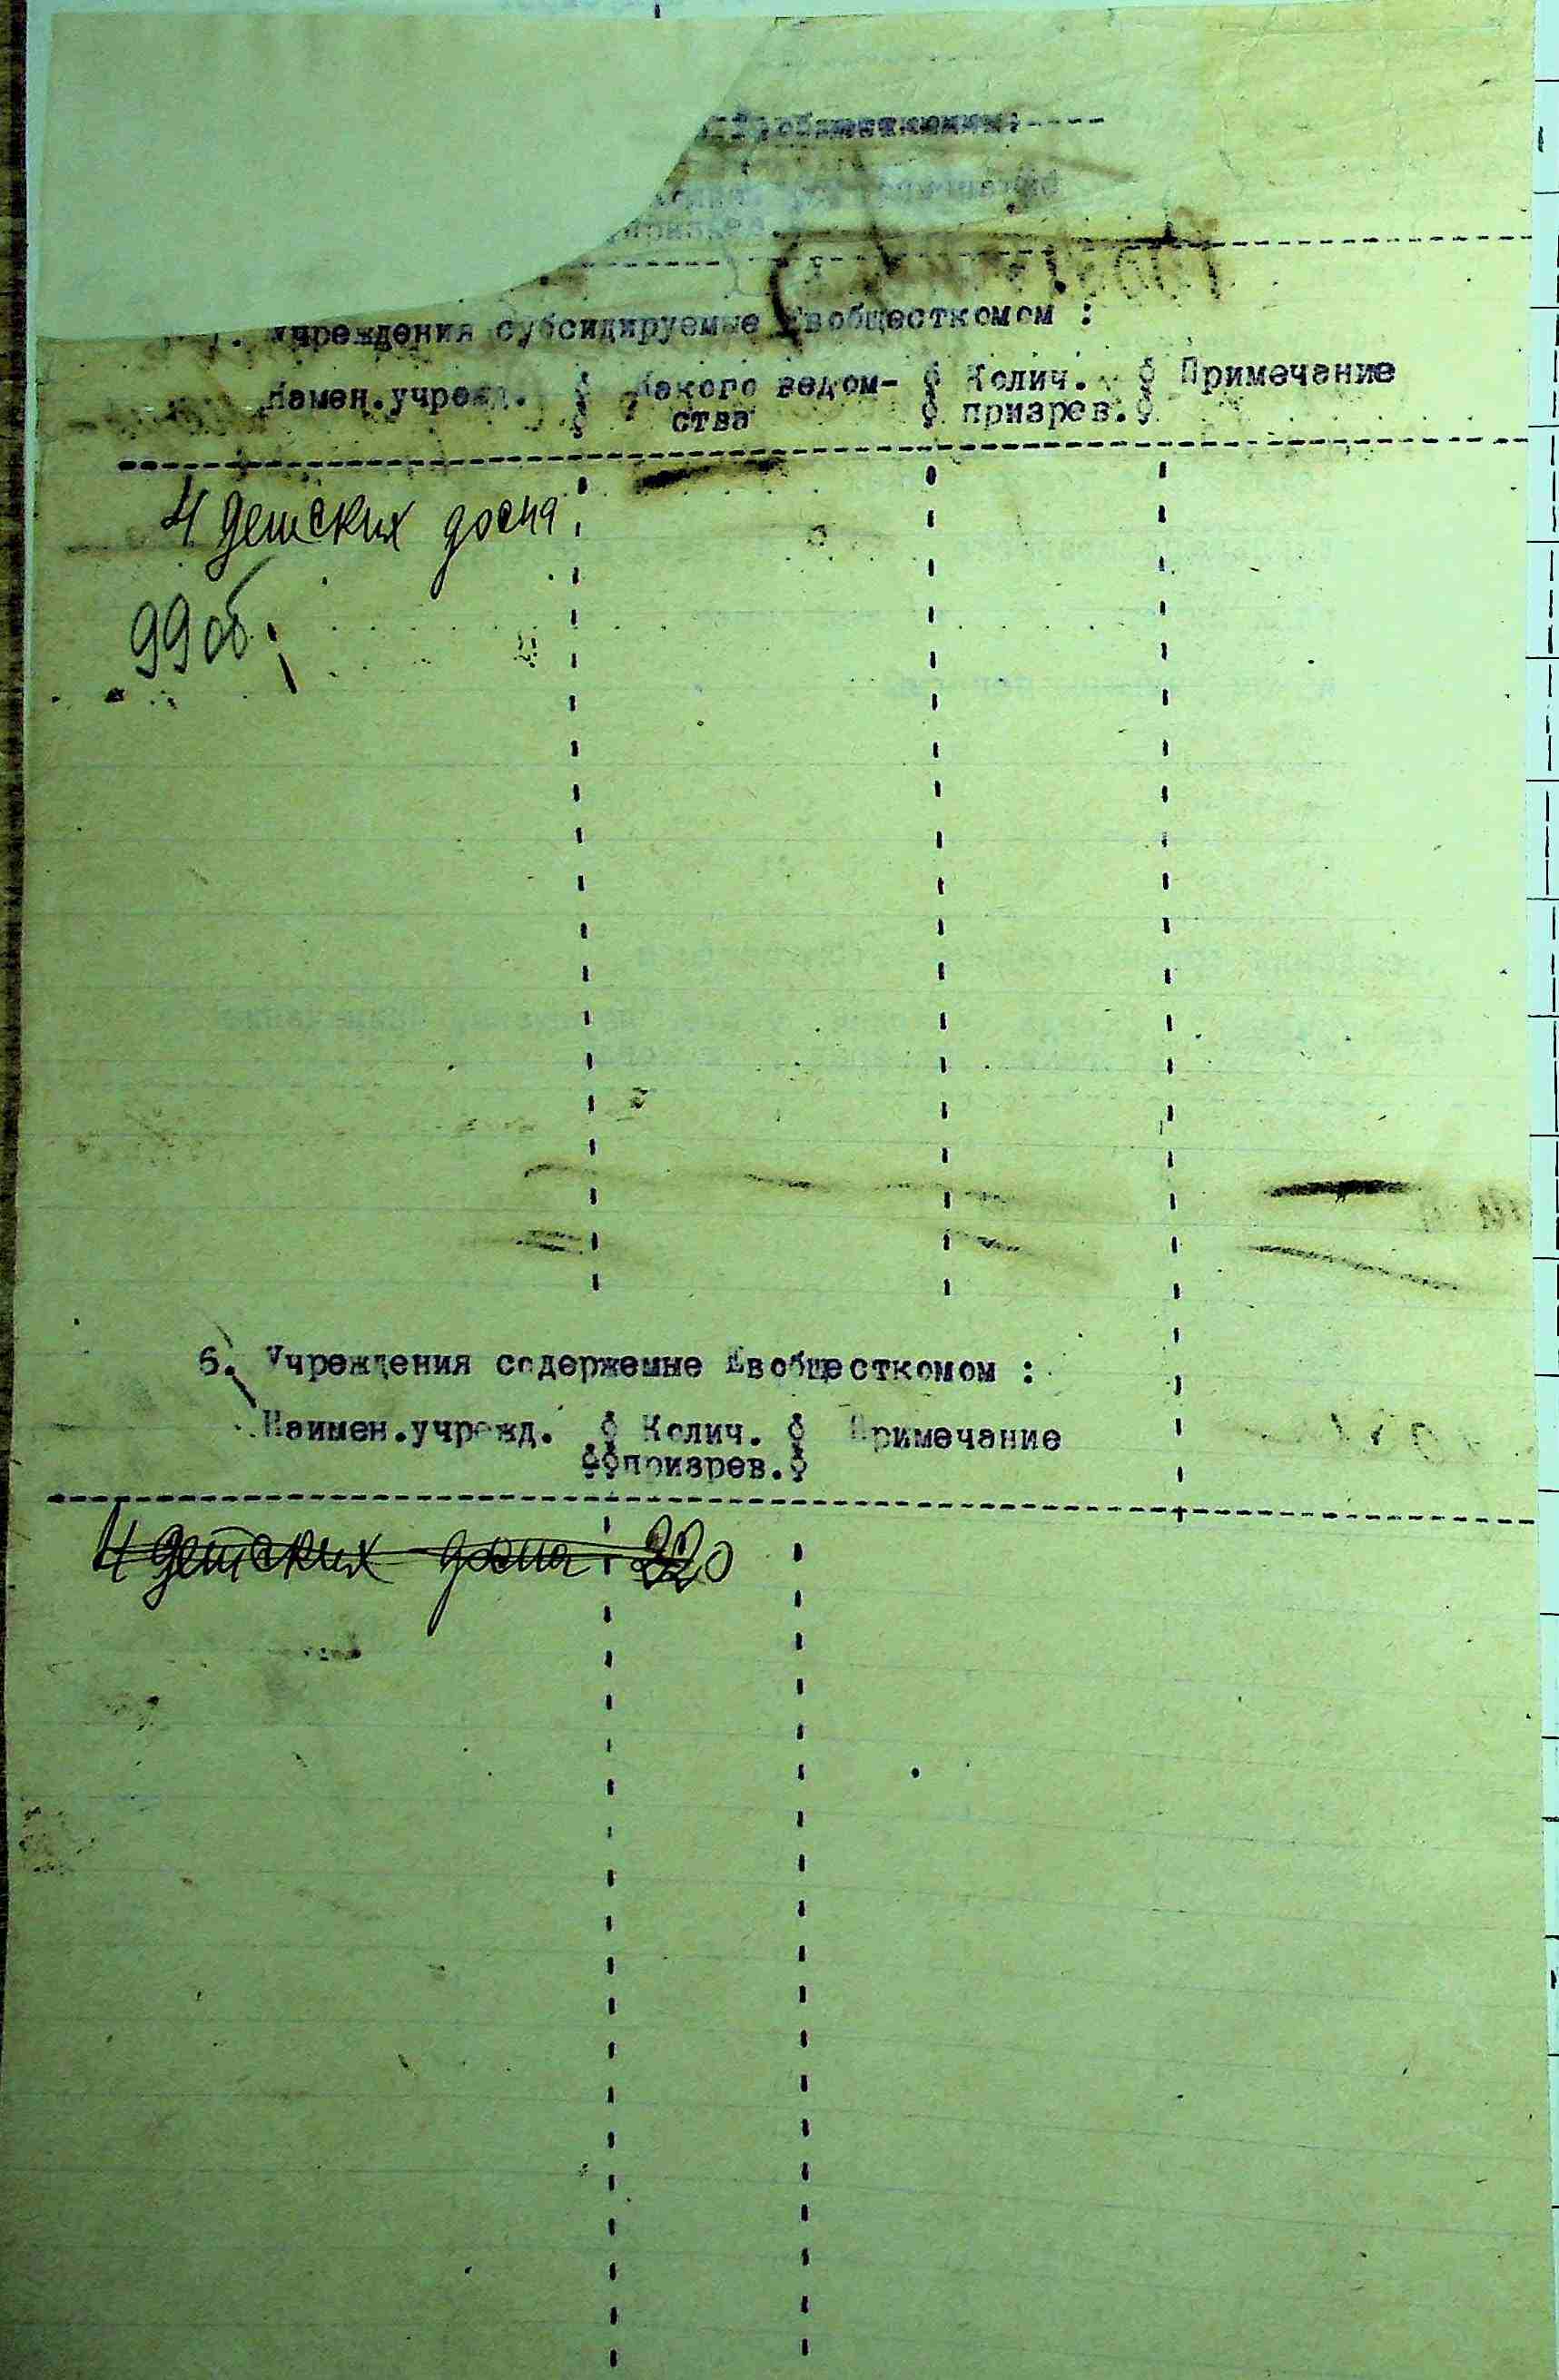 Учреждения субсидируемые Евобщесткомом :
Намен.учрежд. Какого ведом- Колич. Примечание
ства призрев.
4 детских дома
99об.
6. Учреждения содержемые Евобщесткомом :
Наимен.учрежд. Колич. Примечание
призрев.
4 детских дома 220